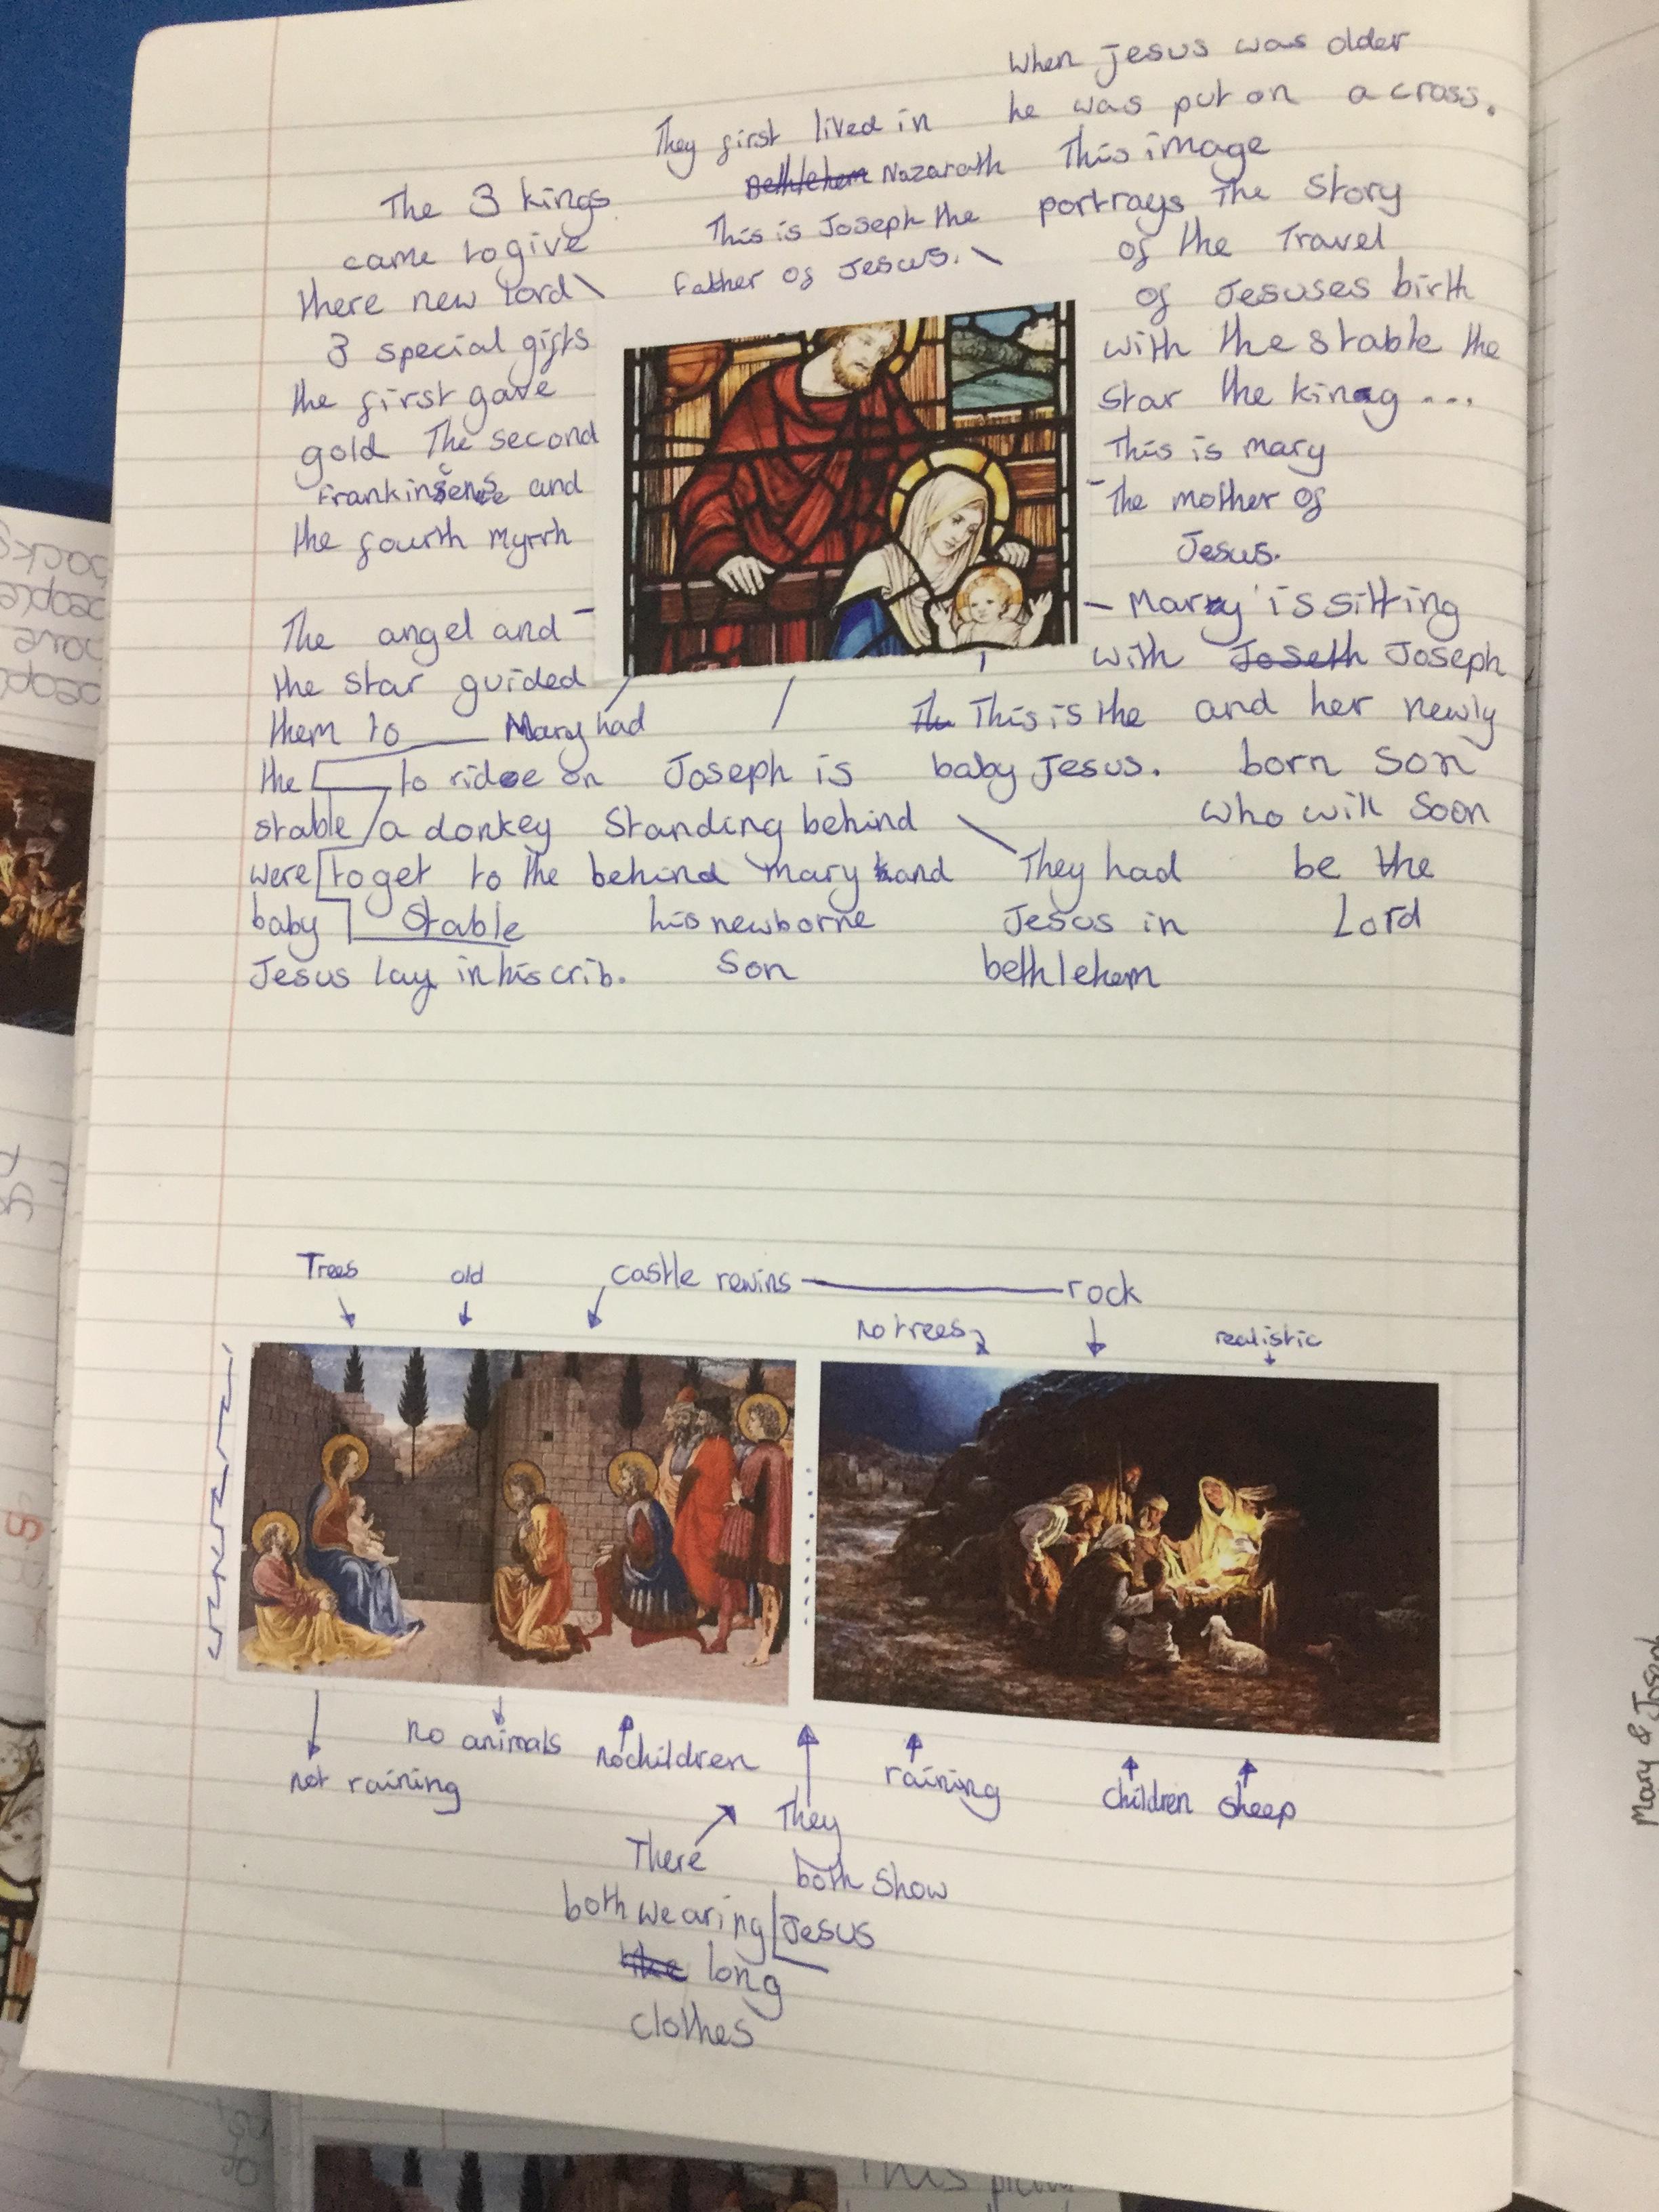 When Jesus was older
he was put on a cross.
They first lived in
Bethlehem Nazarath
This is Joseph the
Father of Jesus.
The 3 kings
came to give
there new lord
3 special gifts
the first gave
gold The second
Frankinsense and
the fourth myrrh
This image
portrays The Story
of the Travel
of Jesuses birth
with the stable the
star the king ...
This is mary
The mother of
Jesus.
Mary is sitting
with Joseth Joseph
and her newly
born son
who will soon
be the
Lord
The angel and
the star guided
them to
the
stable
were
baby
Jesus lay in his crib.
Mary had
to ride on
a donkey
to get to the
Stable
Joseph is
Standing behind
behind mary and
his newborne
Son
Th This is the
baby Jesus.
They had
Jesus in
bethlehem
Trees
old
castle rewins
rock
No trees
realistic
not raining
no animals
no children
raining
children
sheep
There
both wearing
like long
clothes
They
both show
Jesus
Mary & Joseph
people